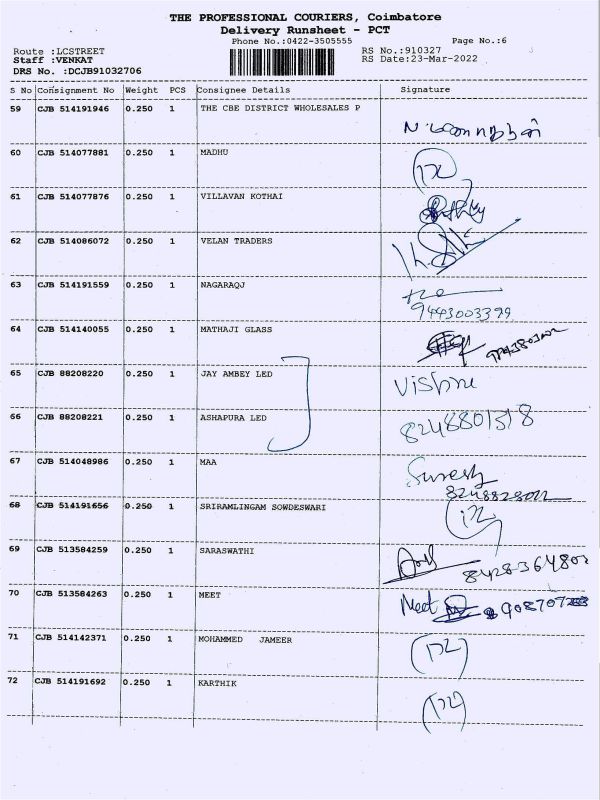 THE PROFESSIONAL COURIERS, Coimbatore
Delivery Runsheet - PCT
Phone No.:0422-3505555 Page No.:6
Route :LCSTREET RS No.:910327
Staff :VENKAT RS Date:23-Mar-2022
DRS No. :DCJB91032706
S No Consignment No Weight PCS Consignee Details Signature
59 CJB 514191946 0.250 1 THE CBE DISTRICT WHOLESALES P
60 CJB 514077881 0.250 1 MADHU
61 CJB 514077876 0.250 1 VILLAVAN KOTHAI
62 CJB 514086072 0.250 1 VELAN TRADERS
63 CJB 514191559 0.250 1 NAGARAQJ
9443003399
64 CJB 514140055 0.250 1 MATHAJI GLASS
65 CJB 88208220 0.250 1 JAY AMBEY LED Vishnu
66 CJB 88208221 0.250 1 ASHAPURA LED 8248801518
67 CJB 514048986 0.250 1 MAA Suresh
68 CJB 514191656 0.250 1 SRIRAMLINGAM SOWDESWARI
69 CJB 513584259 0.250 1 SARASWATHI
70 CJB 513584263 0.250 1 MEET Meet
71 CJB 514142371 0.250 1 MOHAMMED JAMEER
72 CJB 514191692 0.250 1 KARTHIK